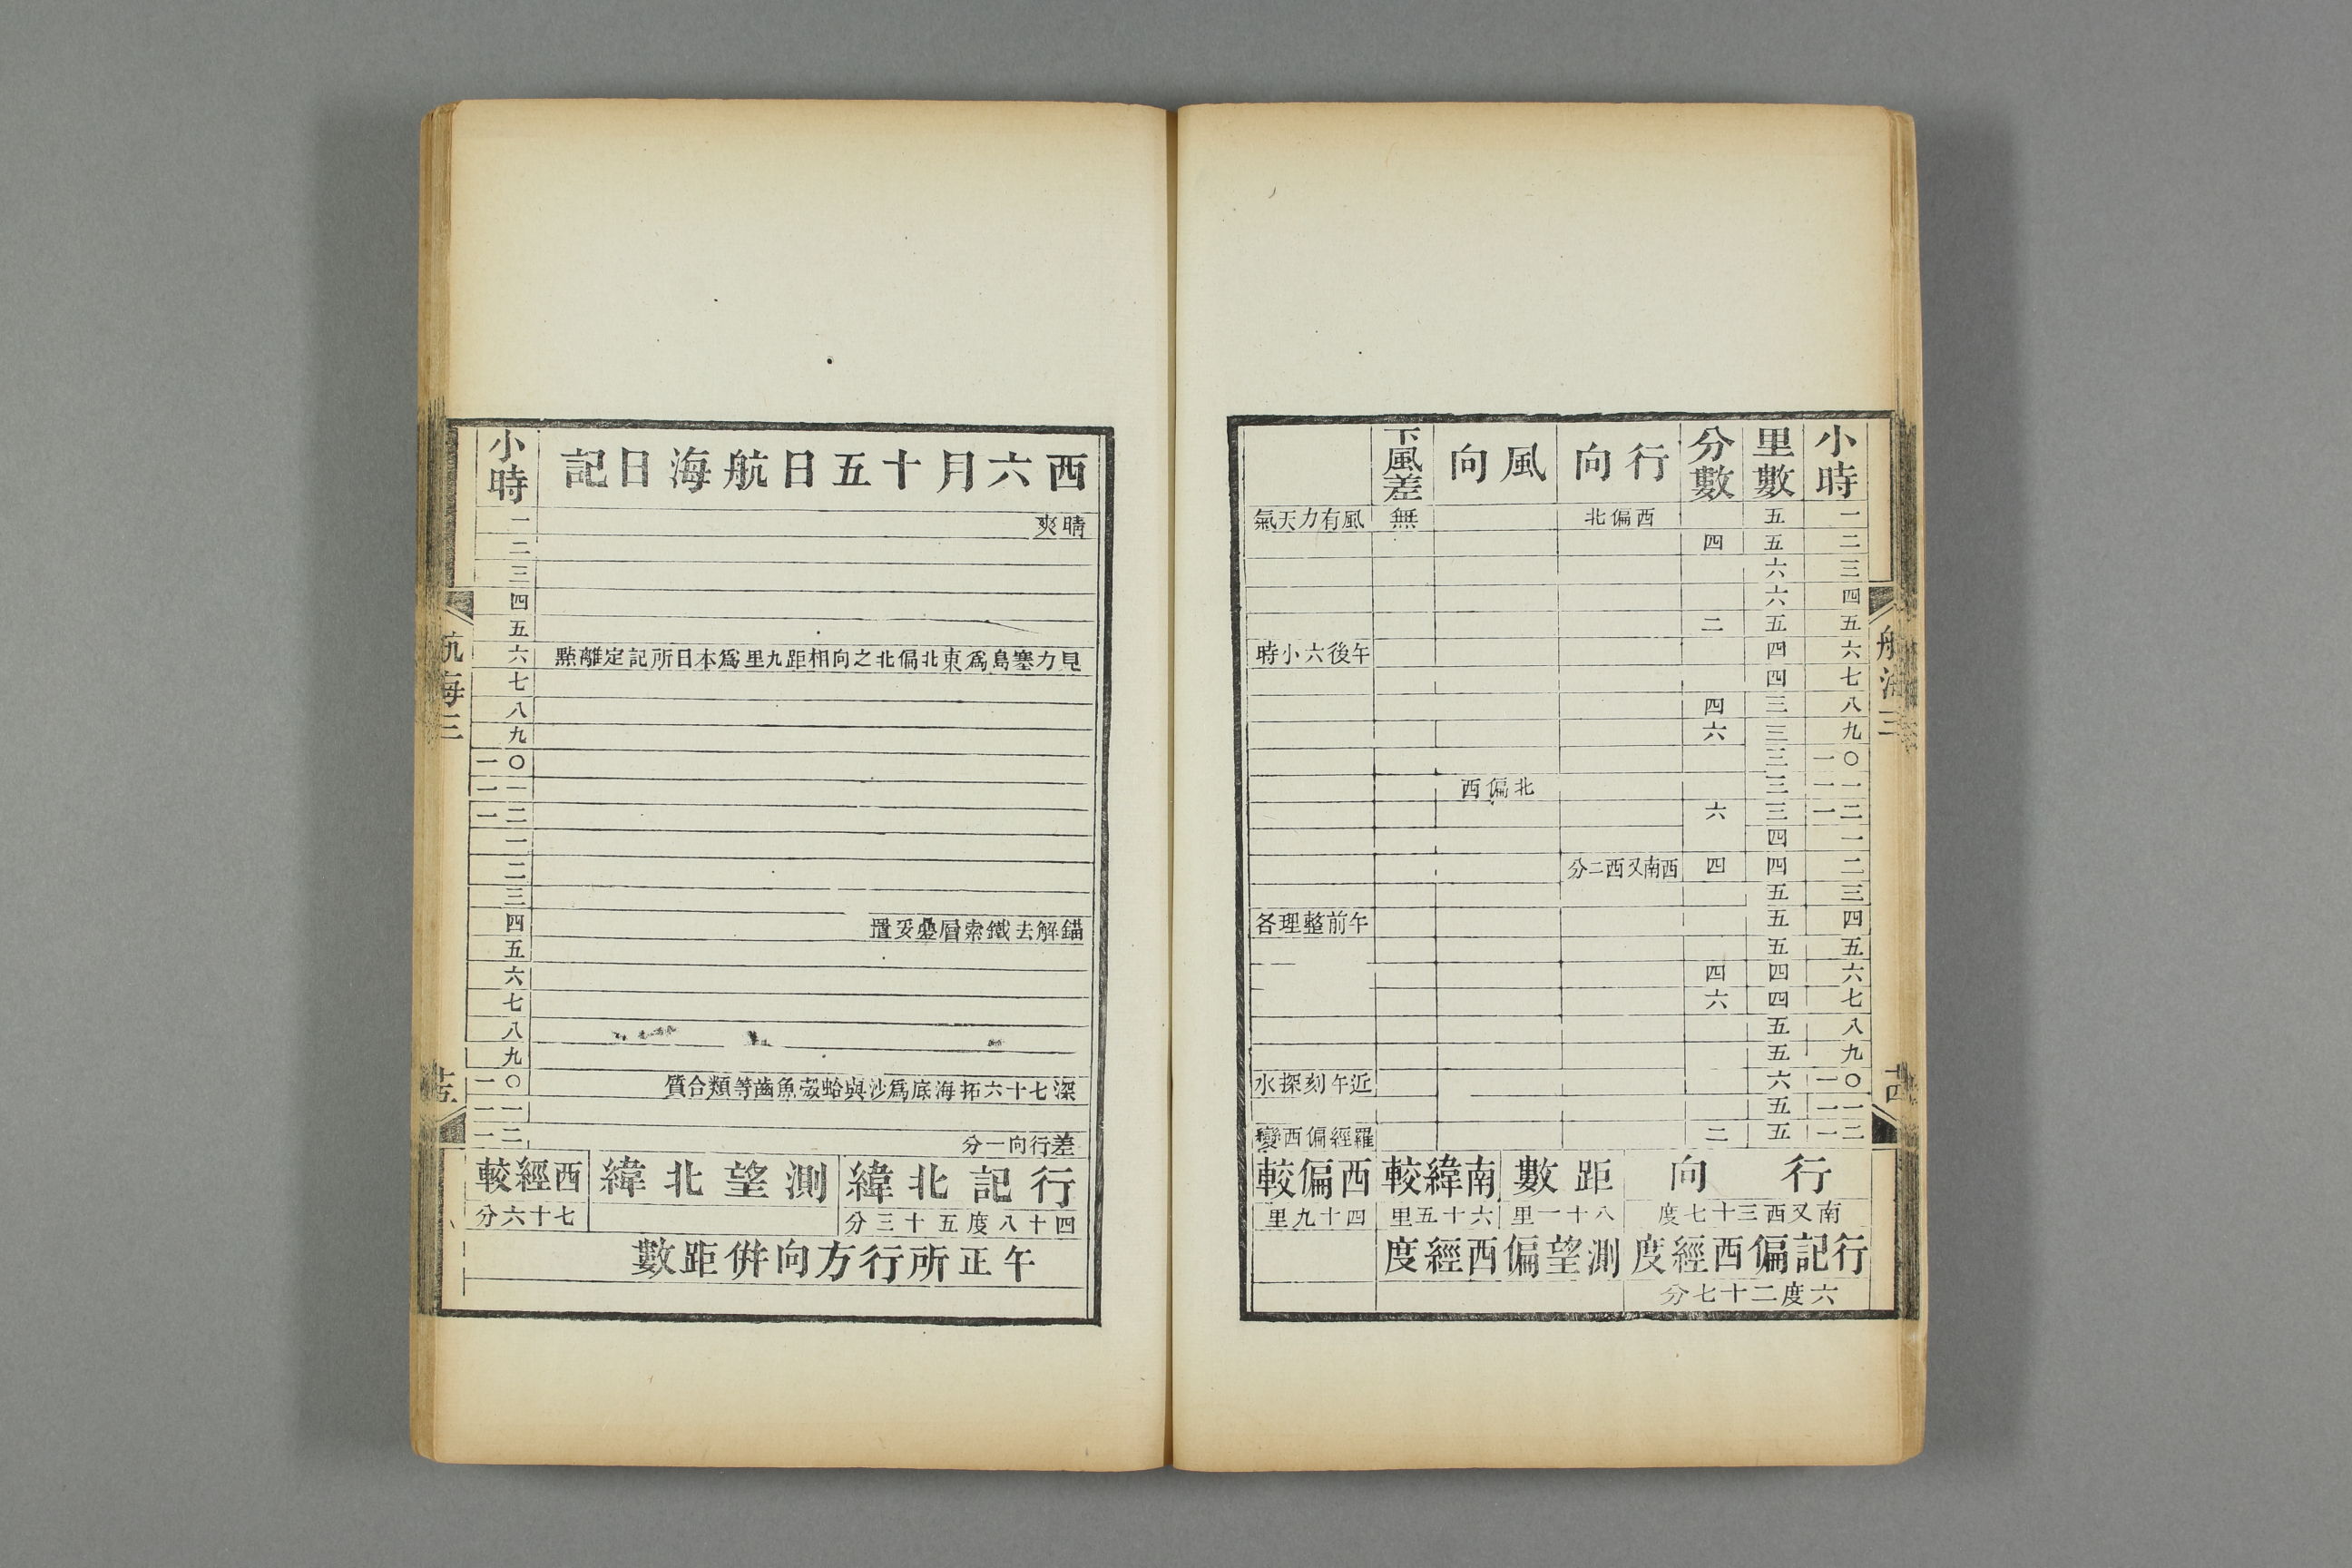 小時 里數 分數 行向 風向 下風差
一 五 西偏北 無 風有力天氣
二 五 四
三 六
四 六
五 五 二
六 四 午後六小時
七 四
八 三 四
九 三 六
一〇 三
一一 三 北偏西
一二 三 六
一 四
二 四 四 西南又西二分
三 五
四 五 午前整理各
五 五
六 四 四
七 四 六
八 五
九 五
一〇 六 近午刻探水
一一 五
一二 五 二 羅經偏西變
行向 距數 南緯較 西偏較
南又西三十七度 八十一里 六十五里 四十九里
行記偏西經度 測望偏西經度
六度二十七分
航海三
西六月十五日航海日記 小時
晴爽 一
二
三
四
五
見力塞島爲東北偏北之向相距九里爲本日所記定離點 六
七
八
九
一〇
一一
一二
一
二
三
錨解去鐵索層壘妥置 四
五
六
七
八
九
深七十六拓海底爲沙與蛤殼魚齒等類合質 一〇
一一
差行向一分 一二
行記北緯 測望北緯 西經較
四十八度五十三分 七十六分
午正所行方向併距數
航海三